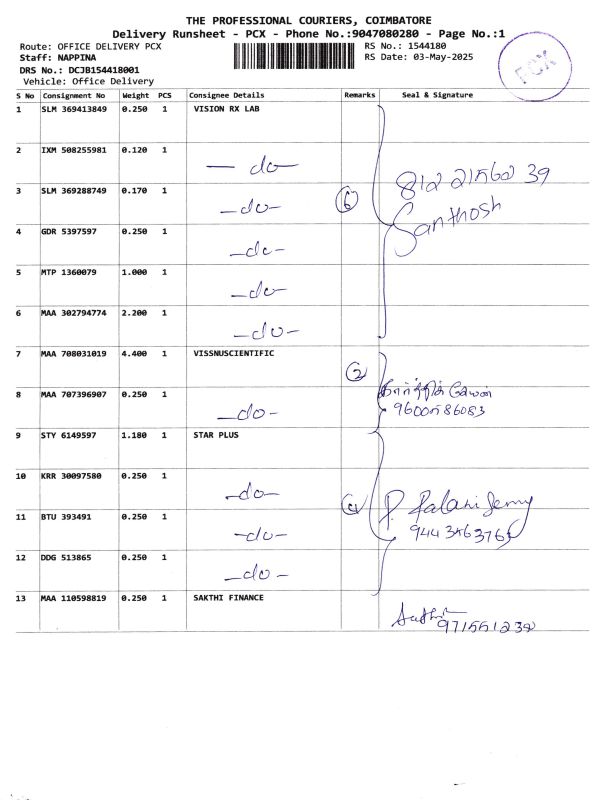 THE PROFESSIONAL COURIERS, COIMBATORE
Delivery Runsheet - PCX - Phone No.:9047080280 - Page No.:1
Route: OFFICE DELIVERY PCX RS No.: 1544180
Staff: NAPPINA RS Date: 03-May-2025
DRS No.: DCJB154418001
Vehicle: Office Delivery
PCX
S No Consignment No Weight PCS Consignee Details Remarks Seal & Signature
1 SLM 369413849 0.250 1 VISION RX LAB
2 IXM 508255981 0.120 1 — do —
3 SLM 369288749 0.170 1 — do — 6 Santhosh
4 GDR 5397597 0.250 1 — do —
5 MTP 1360079 1.000 1 — do —
6 MAA 302794774 2.200 1 — do —
7 MAA 708031019 4.400 1 VISSNUSCIENTIFIC 2
8 MAA 707396907 0.250 1 — do —
9 STY 6149597 1.180 1 STAR PLUS
10 KRR 30097580 0.250 1 — do —
11 BTU 393491 0.250 1 — do —
12 DDG 513865 0.250 1 — do —
13 MAA 110598819 0.250 1 SAKTHI FINANCE